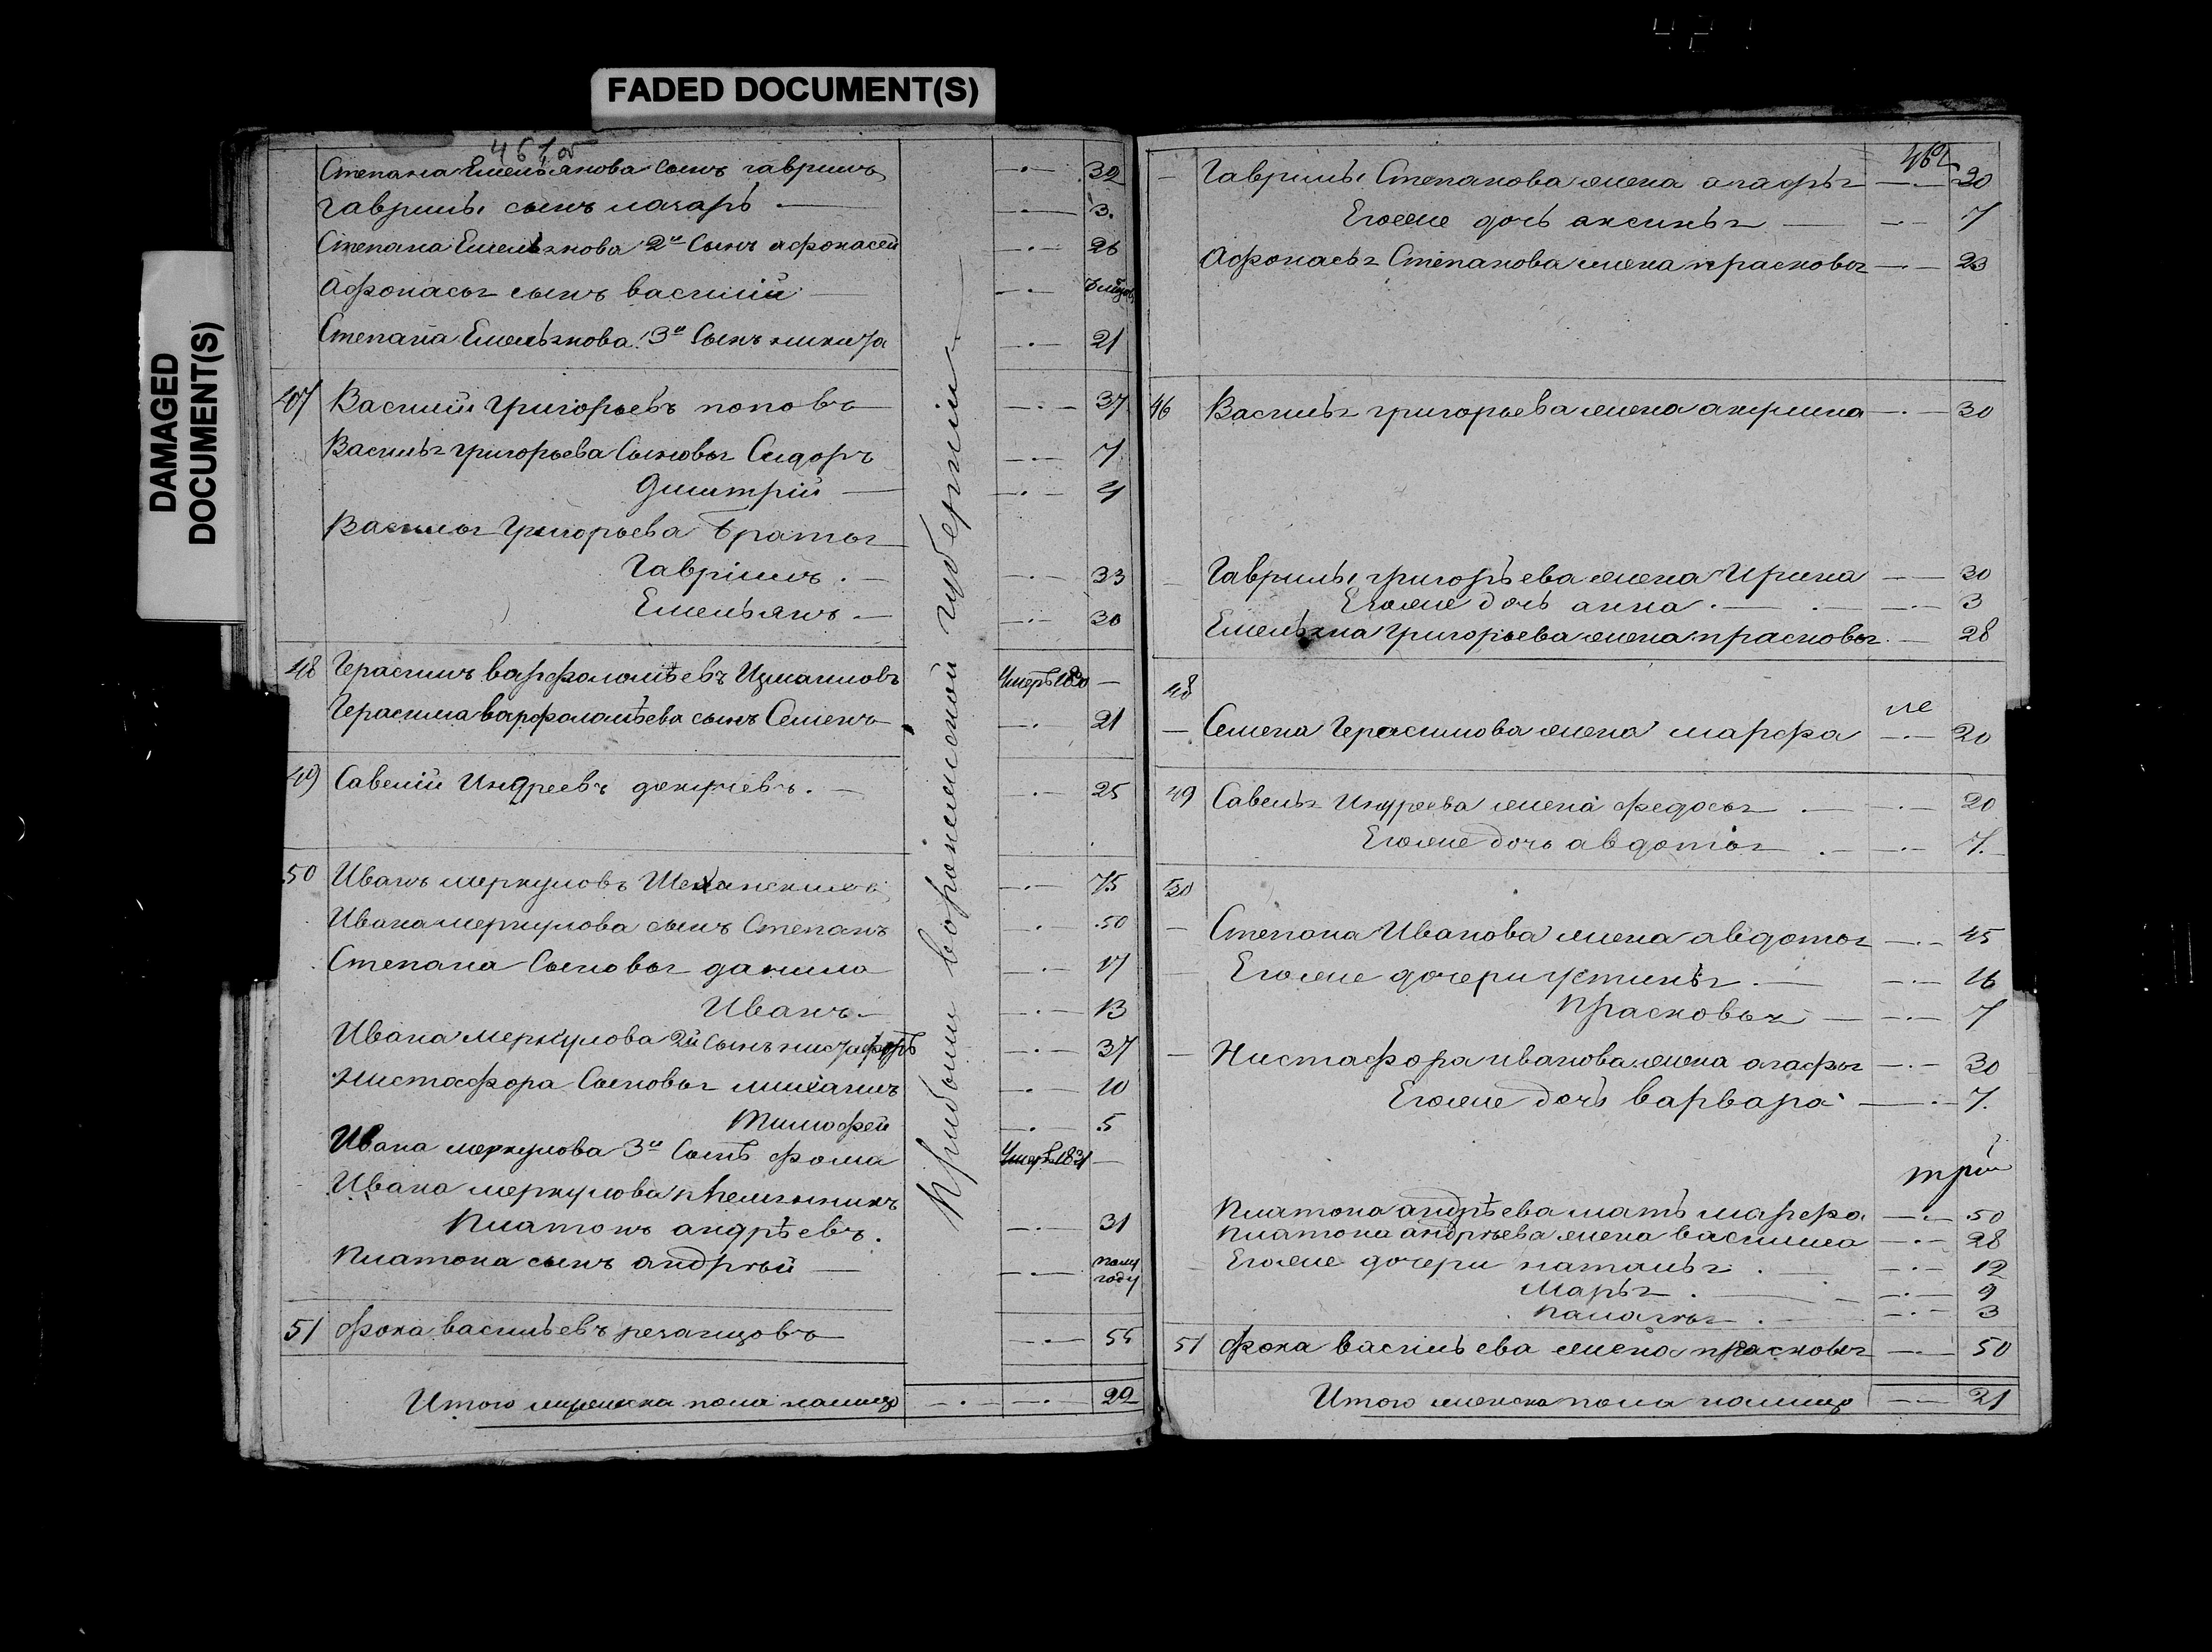 FADED DOCUMENT(S)
DAMAGED
DOCUMENT(S)
461 об
Степана Емельянова сынъ гаврилъ — 32
Гаврилы сынъ макаръ — 3.
Степана Емельянова 2й Сынъ афонасей — 26
Афонасья сынъ василий —
Степана Емельянова 3й Сынъ никита — 21
47 Василий григорьевъ поповъ — 37
Василья григорьева Сыновья Сидоръ — 7
Дмитрий — 4
Василья Григорьева братья
Гаврилъ. — 33
Емельянъ. — 30
48 Герасимъ варфоломѣевъ Измаиловъ Умеръ 1830 —
Герасима варфоломѣева сынъ Семенъ — 21
49 Савелий Индреевъ — 25
50 Иванъ меркуловъ — 75
Ивана меркулова сынъ Степанъ — 50
Степана Сыновья данила — 17
Иванъ — 13
Ивана меркулова 2й сынъ — 37
Нистафора Сыновья михаилъ — 10
Тимофей — 5
Ивана меркулова 3й Сынъ фома Умеръ 1831 —
Ивана меркулова племянникъ
Платонъ андрѣевъ. — 31
Платона сынъ андрѣй — полу году
51 Фока васильевъ резанцовъ — 55
Итого мужеска пола налицо — 22
Прибыли воронежской губернии
462
Гаврилы Степанова жена агафья — 20
Егоже дочь аксинья — 7
Афонасья Степанова жена прасковья — 23
46 Василья григорьева жена акулина — 30
Гаврилы григорьева жена Ирина — 30
Егоже дочь анна. — 3
Емельяна Григорьева жена прасковья. — 28
48
Семена Герасимова жена марфа — 20
49 Савелья Индреева жена федосья — 20
Егоже дочь авдотья — 7.
50
Степана Иванова жена авдотья — 45
Егоже дочери устинья — 16
Прасковья — 7
Нистафора иванова жена агафья — 30
Егоже дочь варвара — 7.
Платона андрѣева мать марфа — 50
Платона андрѣева жена василиса — 28
Егоже дочери наталья — 12
Марья — 9
Палагея — 3
51 Фока васильева жена прасковья — 50
Итого женска пола налицо — 21